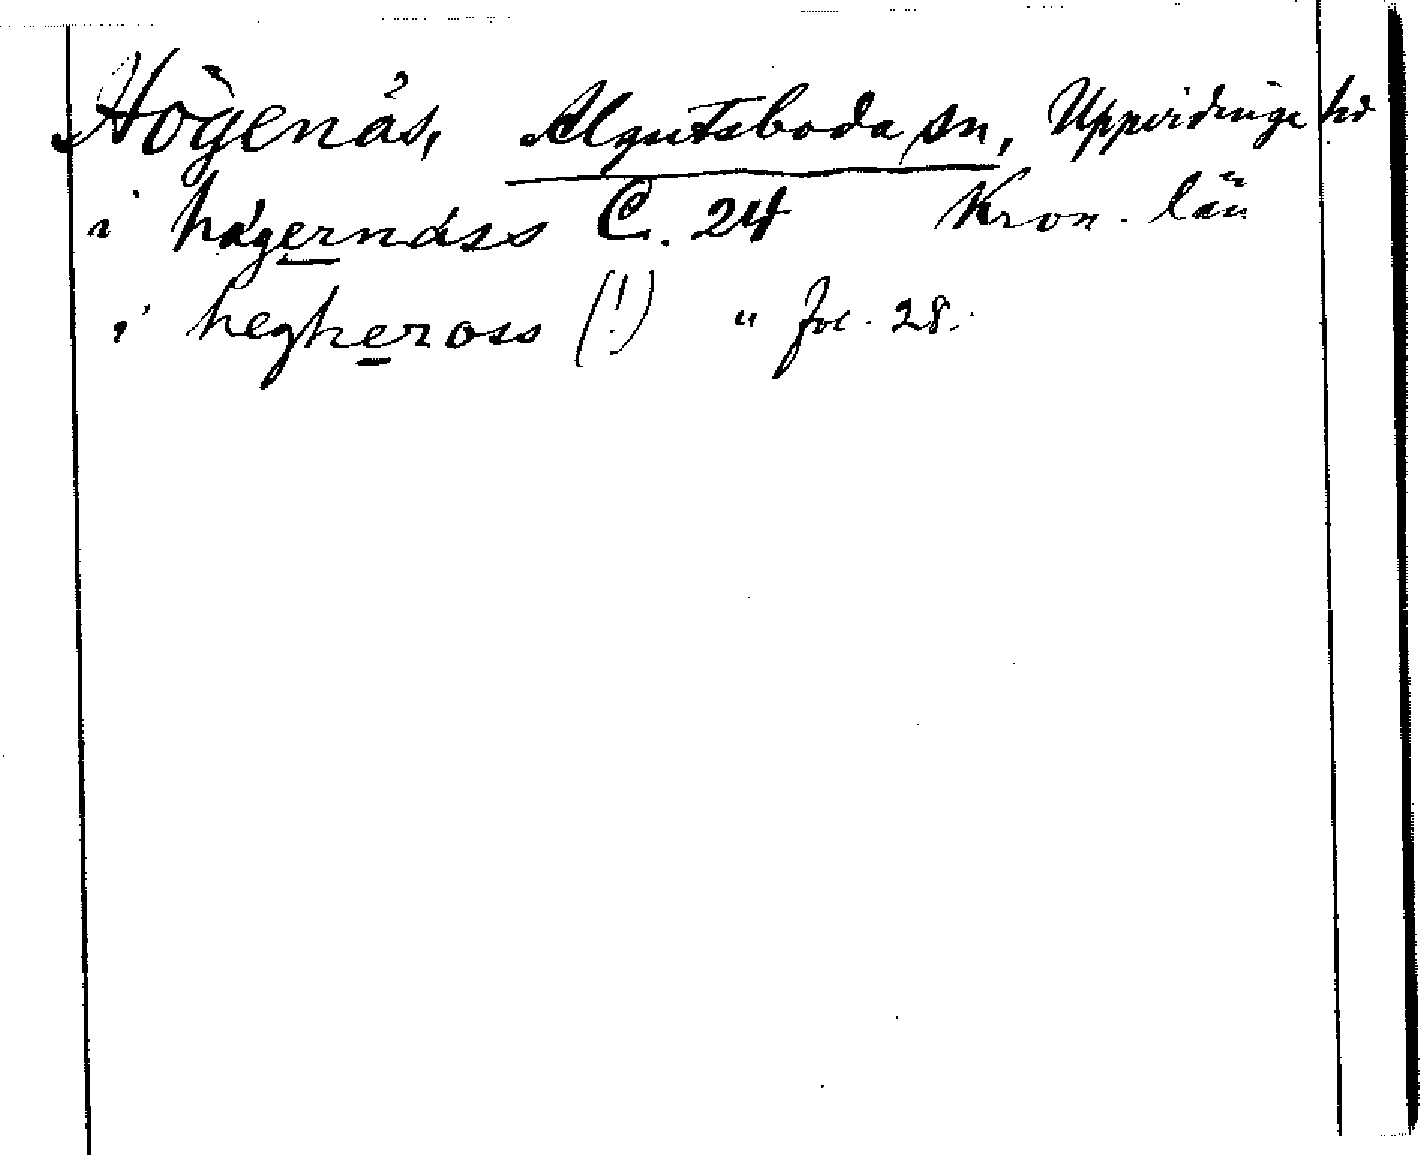 Högenäs, Algutsboda sn, Uppvidinge hd
i hägernäss C. 24 Kron. län
i hegheross (!) " fol. 28.